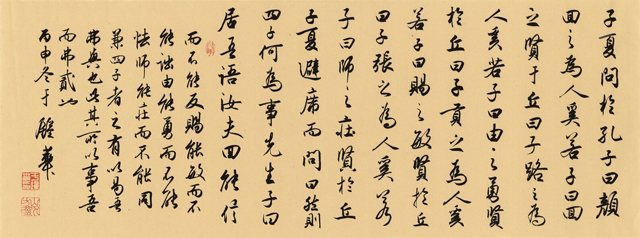 子夏問於孔子曰顏
回之為人奚若子曰回
之賢于丘曰子路之為
人奚若子曰由之勇賢
於丘曰子貢之為人奚
若子曰賜之敏賢於丘
曰子張之為人奚若
子曰師之莊賢於丘
子夏避席而問曰然則
四子何為事先生子曰
居吾語汝夫回能信
而不能反賜能敏而不
能詘由能勇而不能
怯師能莊而不能同
兼四子者之有以易吾
弗與也此其所以事吾
而弗貳也
丙申冬于
華